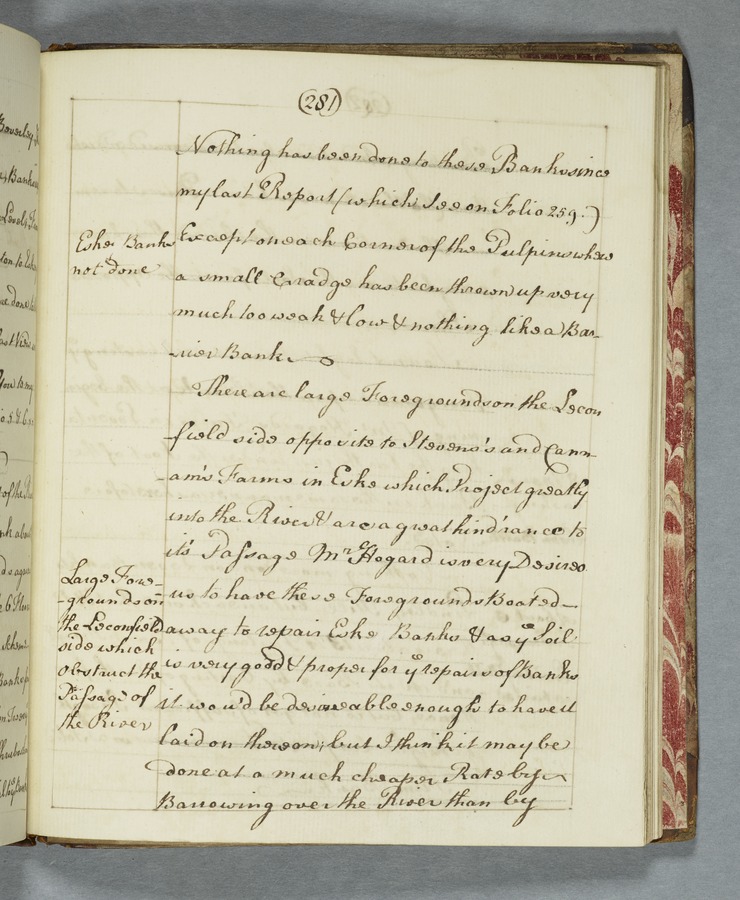 (281)
Nothing has been done to these Banks since
my last Report (which See on Folio 259.)
Eske Banks
not done
Except on each Corner of the Pulpins where
a small Cradge has been thrown up very
much too weak & low & nothing like a Bar-
-rier Bank
There are large Foregrounds on the Lecon
field side opposite to Stevens's and Cann-
-am's Farms in Eske which Project greatly
into the River & are a great hind'rance to
it's Passage Mr. Hogard is very Desireo
us to have these Foregrounds Boated
away to repair Eske Banks & as ye Soil
is very good & proper for ye repairs of Banks
it would be desireable enough to have it
laid on thereon; but I think it may be
done at a much cheaper Rate by
Barrowing over the River than by
Large Fore-
-grounds on
the Leconfield
side which
obstruct the
Passage of
the River